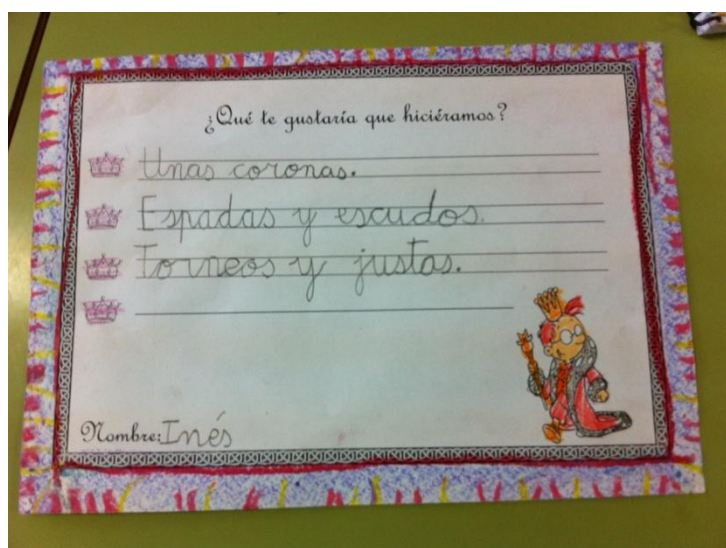 ¿Qué te gustaría que hiciéramos?
Unas coronas.
Espadas y escudos.
Torneos y justas.
Nombre: Inés